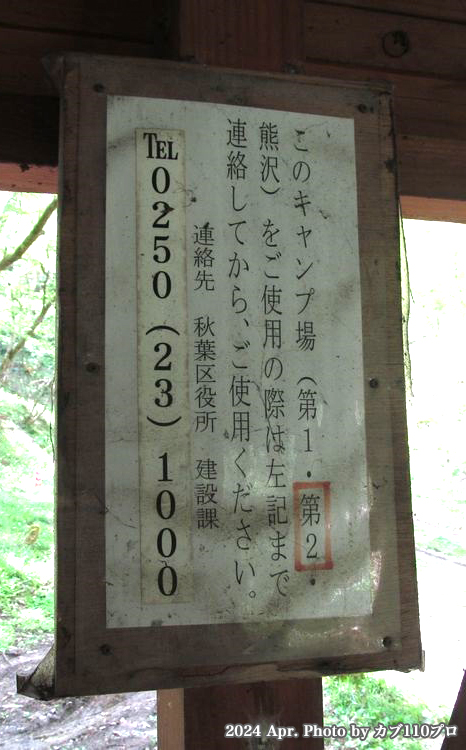 このキャンプ場（第1・第2・
熊沢）をご使用の際は左記まで
連絡してから、ご使用ください。
連絡先 秋葉区役所 建設課
TEL 0250(23)1000
2024 Apr. Photo by カブ110プロ